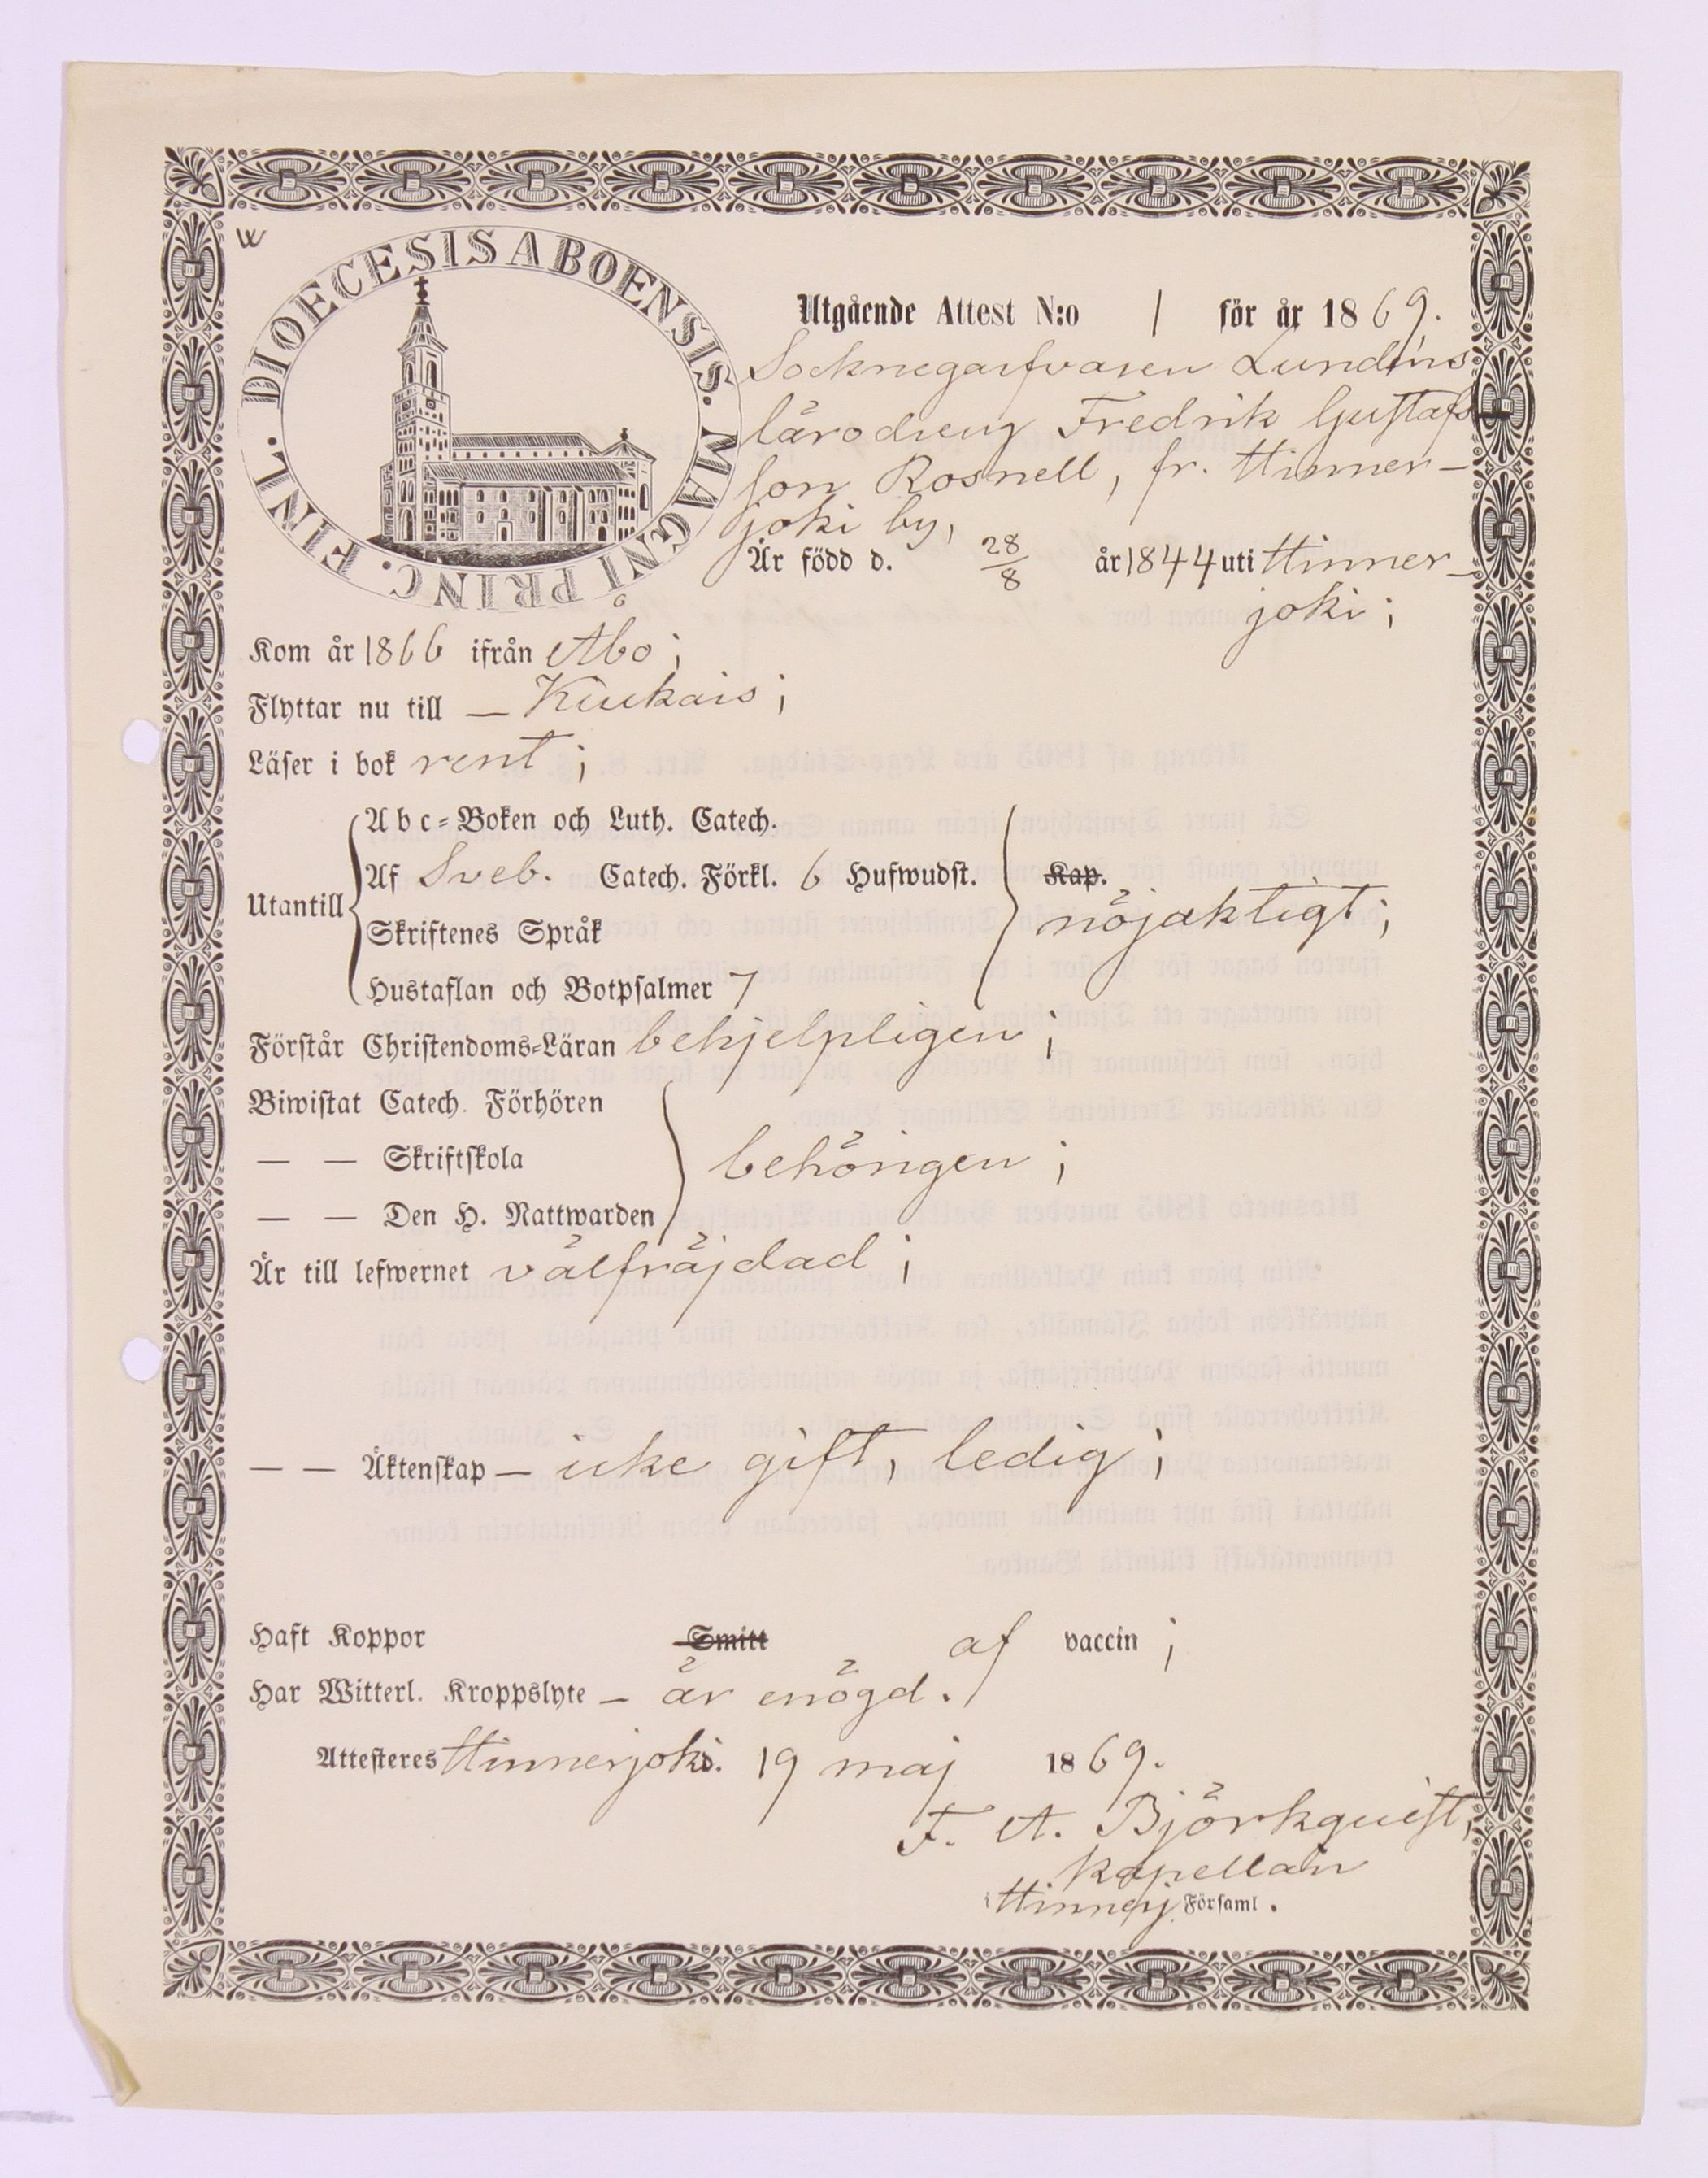 W
DIOECESIS ABOENSIS. MAGNI PRINC. FINL.
Utgående Attest N:o 1 för år 1869.
Socknegarfvaren Lundins
lärodreng Fredrik Gustafs
son Rosnell, fr. Hinner-
joki by,
Är född d. 28/8 år 1844 uti Hinner-
joki;
Kom år 1866 ifrån Åbo;
Flyttar nu till — Kiukais;
Läser i bok rent;
Utantill
Abc-Boken och Luth. Catech.
Af Sveb. Catech. Förkl. 6 Hufwudst. Kap.
nöjaktigt;
Skriftenes Språk
Hustaflan och Botpsalmer 7
Förstår Christendoms-Läran behjelpligen;
Biwistat Catech. Förhören
— — Skriftskola behörigen;
— — Den H. Nattwarden
Är till lefwernet välfräjdad;
— — Äktenskap — icke gift, ledig;
Haft Koppor Smitt af vaccin;
Har Witterl. Kroppslyte — är enögd.
Attesteres Hinnerjoki d. 19 maj 1869.
F. A. Björkquist,
Kapellan
i Hinnerj. Församl.